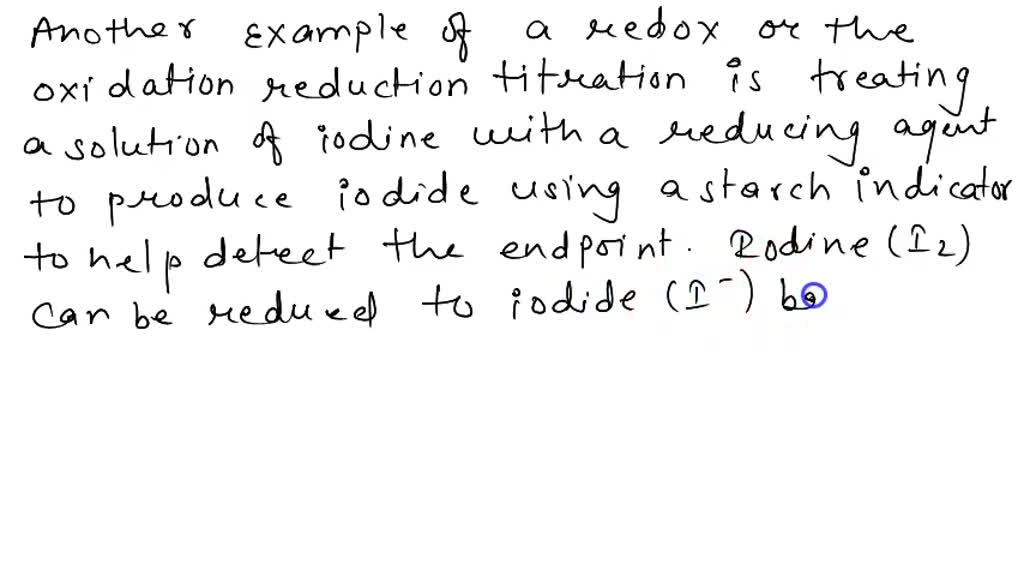 Another example of a redox or the
oxidation reduction titration is treating
a solution of iodine with a reducing agent
to produce iodide using a starch indicator
to help detect the endpoint. Iodine (I2)
can be reduced to iodide (I⁻) be